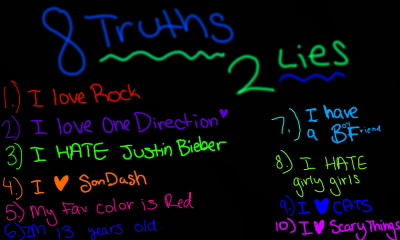 8 Truths
2 Lies
1.) I love Rock
2) I love One Direction
3) I HATE Justin Bieber
4.) I ♥ SonDash
5.) My Fav color is Red
6.) I'm 13 years old
7.) I have
a Boy Friend
8.) I HATE
girly girls
9.) I ♥ CATS
10.) I ♥ Scary Things